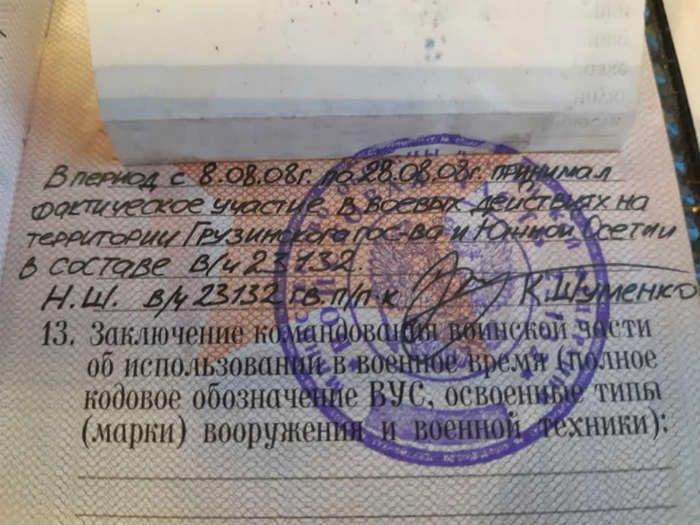 В период с 8.08.08г. по 28.08.08г. принимал
фактическое участие в боевых действиях на
территории Грузинского гос-ва и Южной Осетии
в составе в/ч 23132.
Н.Ш. в/ч 23132 гв. п/п-к К.Шуменко
13. Заключение командования воинской части
об использовании в военное время (полное
кодовое обозначение ВУС, освоенные типы
(марки) вооружения и военной техники):